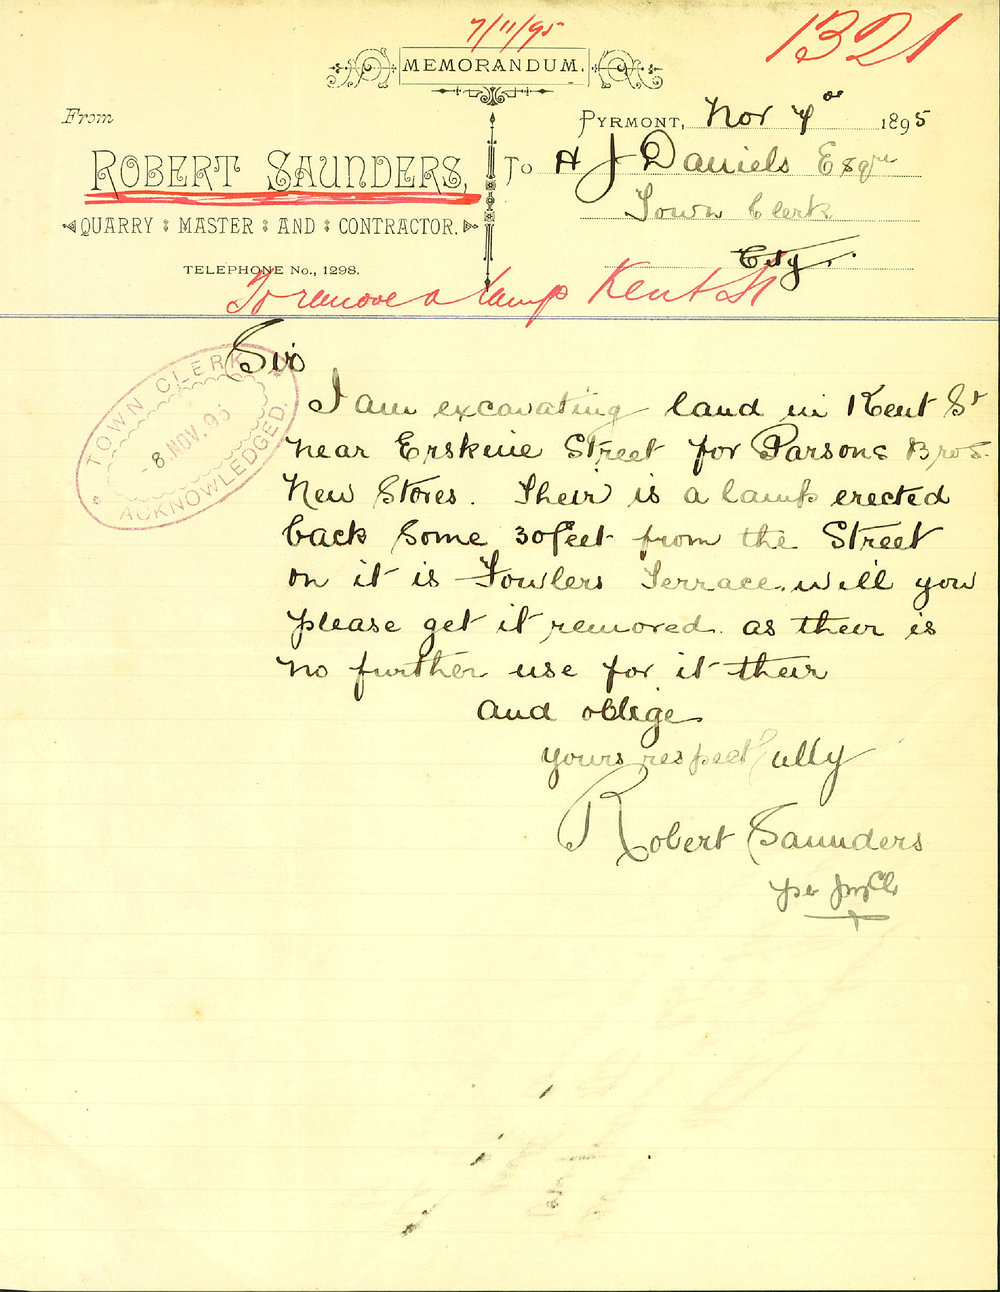 7/11/95
1321
MEMORANDUM.
From
PYRMONT, Nov 7 1895
ROBERT SAUNDERS,
To H J Daniels Esqr
Town Clerk
QUARRY MASTER AND CONTRACTOR.
City
TELEPHONE No., 1298.
To remove a lamp Kent St
TOWN CLERK
- 8 NOV. 95
ACKNOWLEDGED.
Sir
I am excavating land in Kent St
near Erskine Street for Parsons Bros
New Stores. Their is a lamp erected
back Some 30 feet from the Street
on it is Fowlers Terrace. will you
please get it removed. as their is
no further use for it their
and oblige
yours respectfully
Robert Saunders